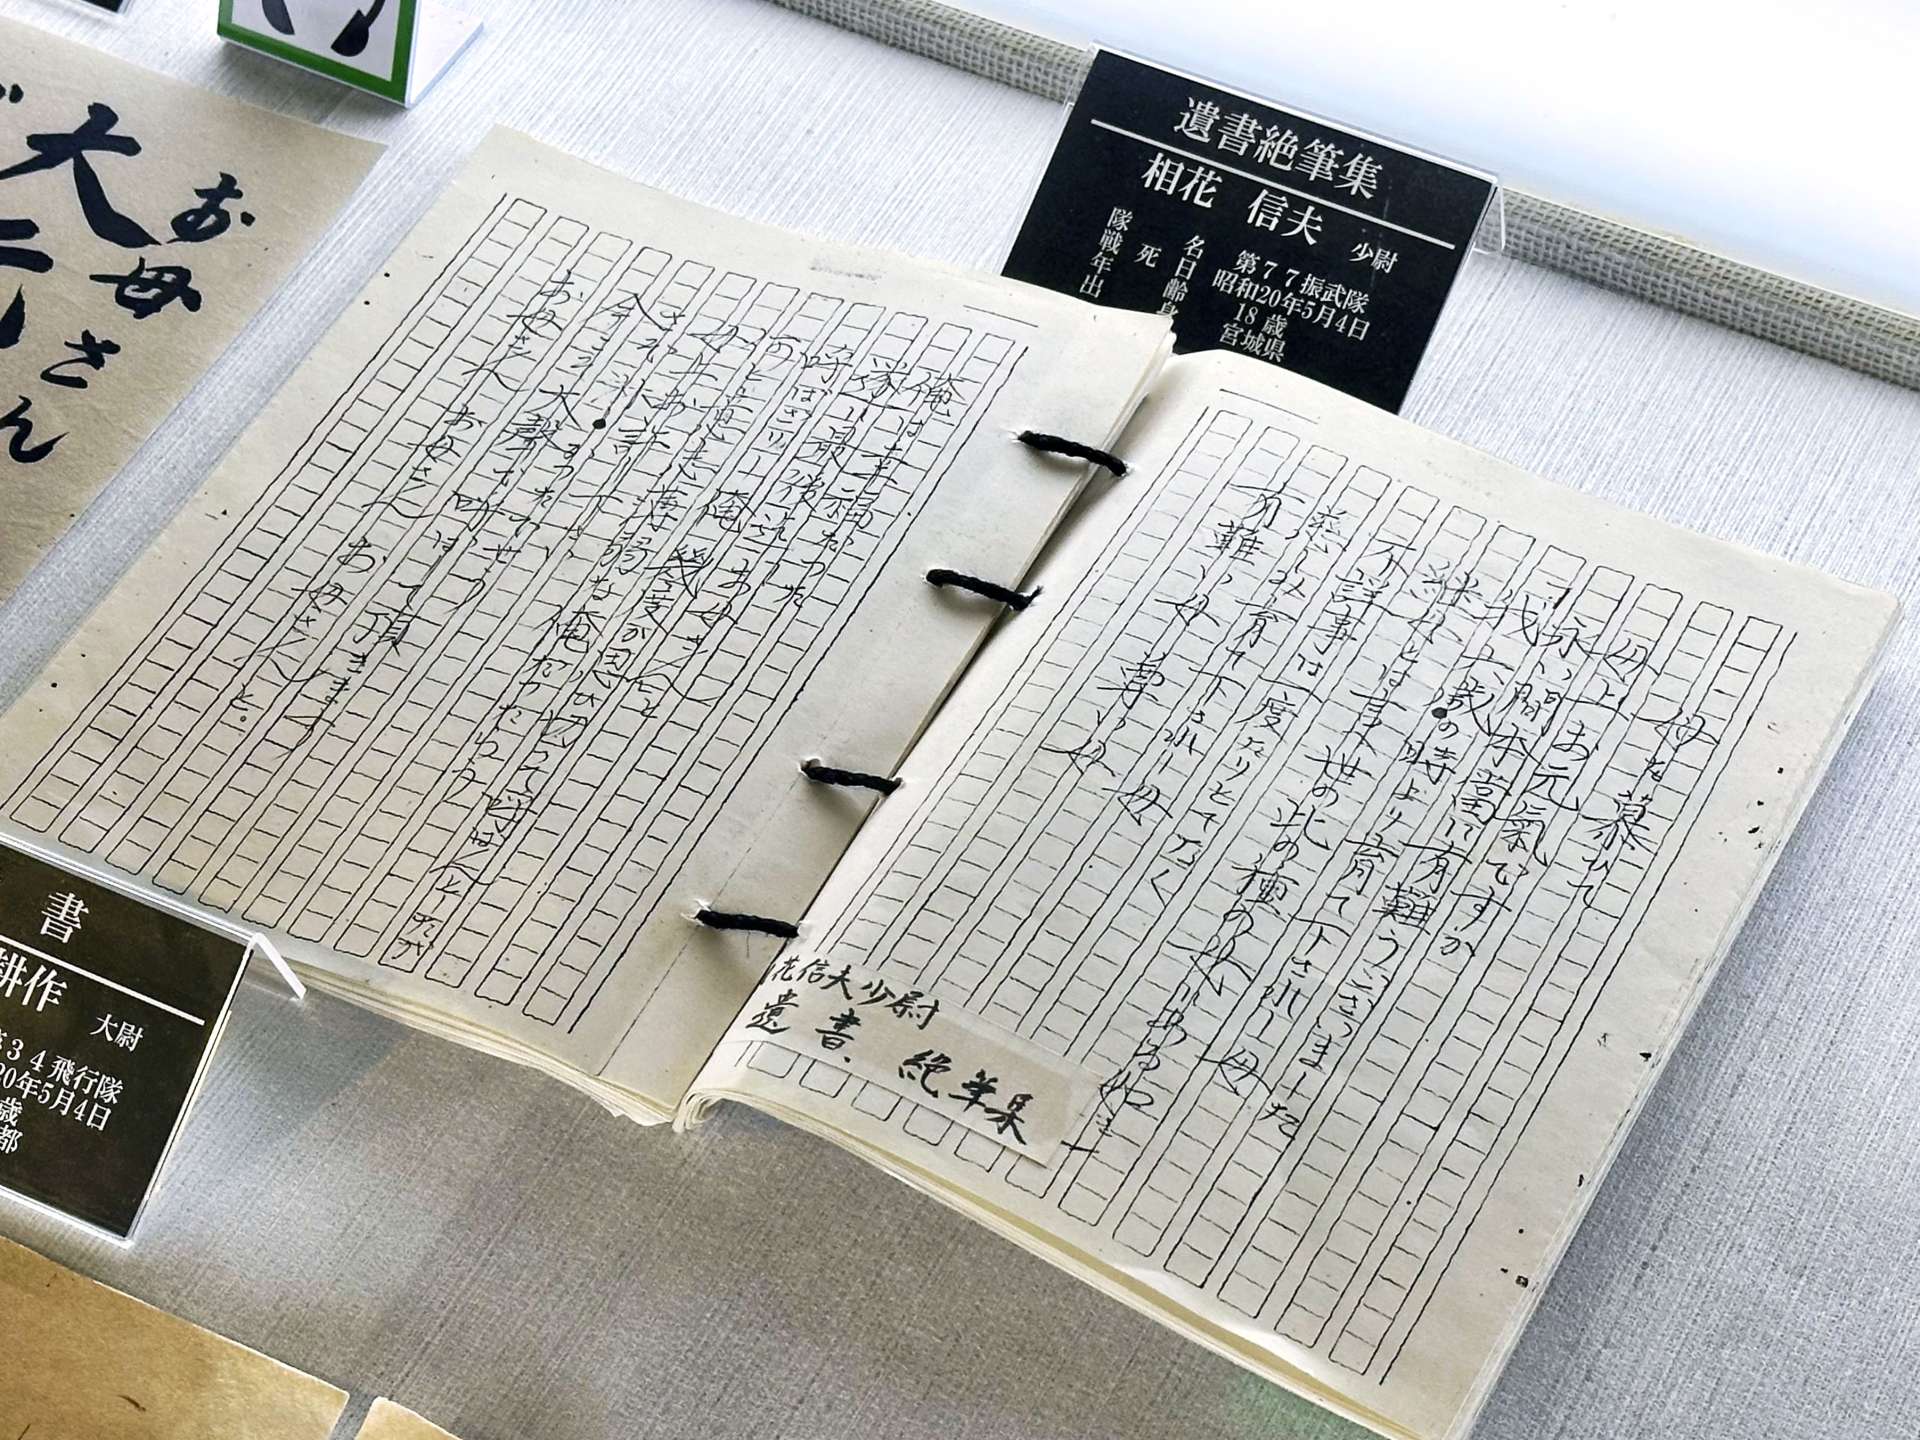 遺書絶筆集
相花 信夫 少尉
隊名 第77振武隊
戦死日 昭和20年5月4日
年齢 18歳
出身 宮城県
母を慕ひて
母上お元氣ですか
永い間本當に有難うございました
我六歳の時より育て下されし母
継母とは言へ世の此の種の女にある如き
不祥事は一度たりとてなく
慈しみ育て下されし母
有難い母 尊い母
俺は幸福だった
遂に最後迄
「お母さん」と呼ばざりし俺
幾度か思ひ切って呼ばんとしたが
何と意志薄弱な俺だったらう
母上お許し下さい
さぞ淋しかったでせう
今こそ大聲で呼ばして頂きます
お母さん お母さん お母さんと。
花信夫少尉
遺書、絶筆集
お母さん
大
書
耕作 大尉
34飛行隊
20年5月4日
歳
都